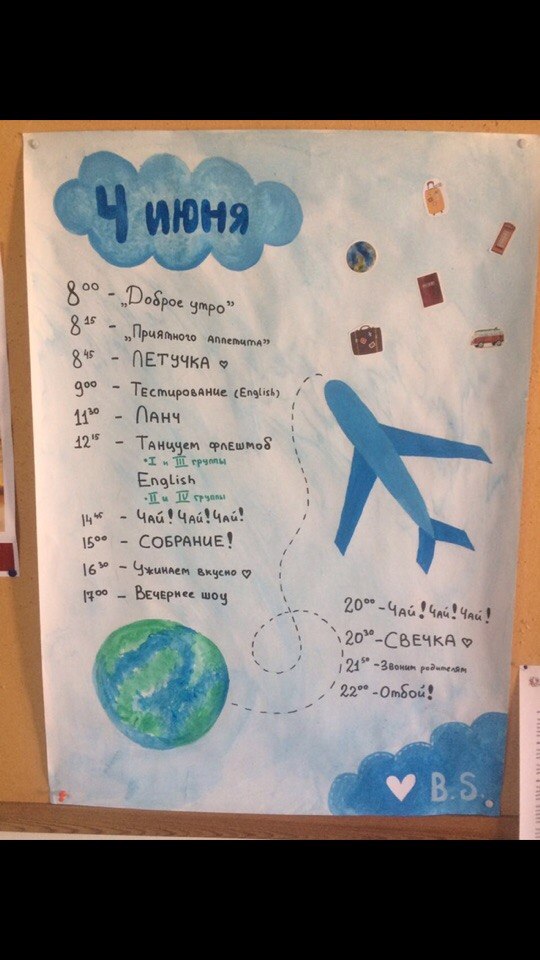 4 июня
8⁰⁰ - „Доброе утро”
8¹⁵ - „Приятного аппетита”
8⁴⁵ - ЛЕТУЧКА ♡
9⁰⁰ - Тестирование (English)
11³⁰ - Ланч
12¹⁵ - Танцуем флешмоб
• I и III группы
English
• II и IV группы
14⁴⁵ - Чай! Чай! Чай!
15⁰⁰ - СОБРАНИЕ!
16³⁰ - Ужинаем вкусно ♡
17⁰⁰ - Вечернее шоу
20⁰⁰ - Чай! Чай! Чай!
20³⁰ - СВЕЧКА ♡
21⁵⁰ - Звоним родителям
22⁰⁰ - Отбой!
B.S.